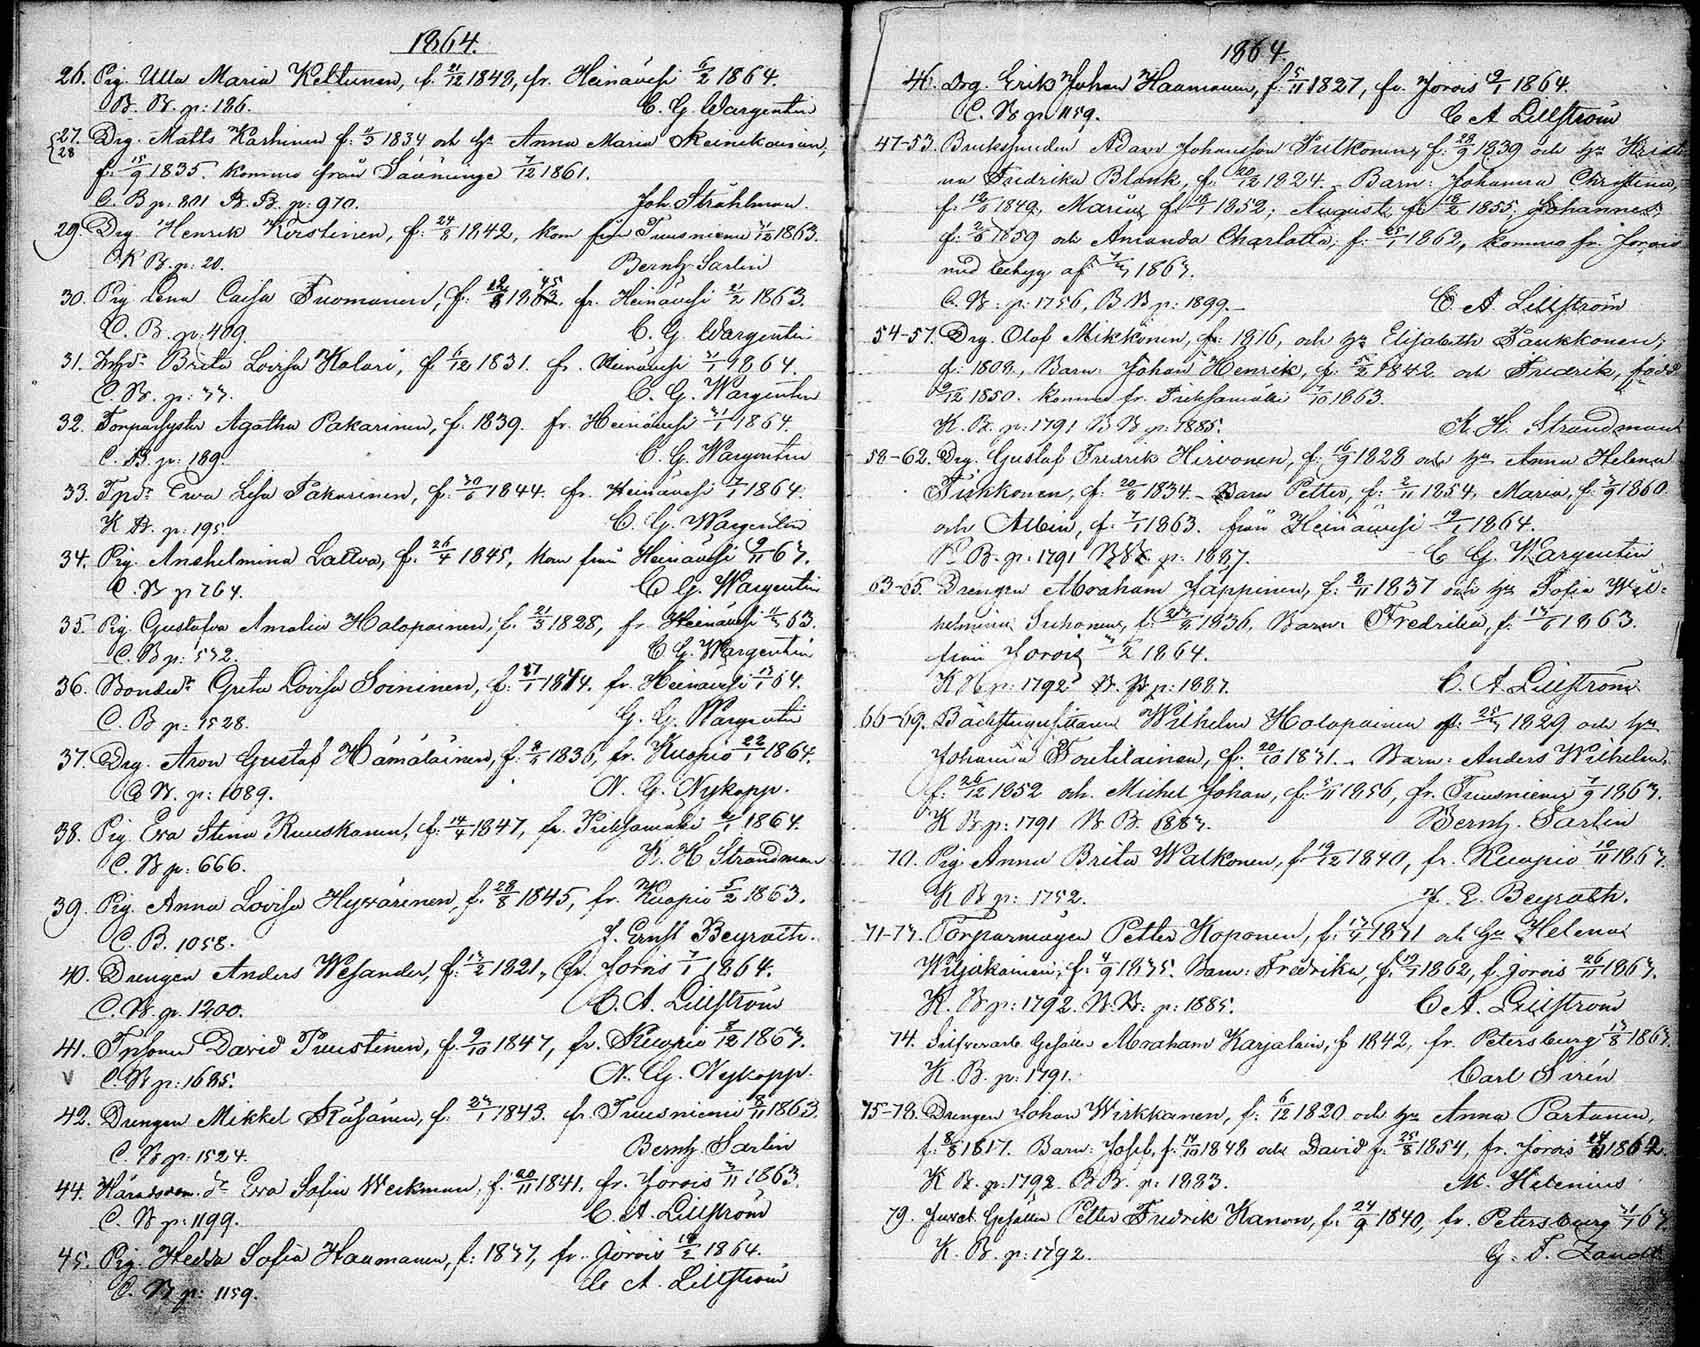 1864.
26. Pig. Ulla Maria Keltunen, f. 21/12 1842, fr. Heinävesi 6/2 1864.
B. B. p: 186. C. G. Wargentin
27. Drg. Matts Karhinen f: 1834 och hu Anna Maria Reinikainen,
28
f: 15/9 1835. komna från Sääminge 7/12 1861.
C. B p: 801 B. B. p: 970. Joh. Stråhlman
29. Drg. Henrik Kerstinen, f: 24/8 1842, kom från Tuusniemi 1863.
K B. p: 20. Bernh. Sarlin
30. Pig Lena Caisa Tuomainen, f: fr. Heinävesi 21/2 1863.
C. B. p: 409. C. G. Wargentin
31. Brita Lovisa Kolari, f 6/12 1831. fr. Heinävesi 1864.
C. B. p: C. G. Wargentin
32. Torparsyster Agatha Pakarinen, f. 1839. fr. Heinävesi 31/1 1864.
C. B. p: 189. C. G. Wargentin
33. Tpd: Ewa Lisa Pakarinen, f: 30/6 1844. fr. Heinävesi 1864.
K B. p: 195. C. G. Wargentin
34. Pig. Anshelmina Lattva, f. 26/4 1845, kom från Heinävesi 9/11 63.
C. B p 764. C G. Wargentin
35. Pig. Gustafva Amalia Holopainen, f. 21/3 1828, fr. Heinävesi 63.
C. B p: 532. C G. Wargentin
36. Bonded: Greta Lovisa Soininen, f. fr. Heinävesi 64.
C. B p: 1528. G. G. Wargentin
37. Drg. Aron Gustaf Hämäläinen, f. 1836, fr. Kuopio 22/1 1864.
C B. p: 1089. A. G. Nykopp.
38. Pig. Eva Stina Ruuskanen, f. 14/4 1847, fr. Pieksämäki 1864.
C. B p: 666. K. H Strandman
39. Pig. Anna Lovisa Hyvärinen, f. 28/8 1845, fr. Kuopio 5/2 1863.
C. B. 1058. J. Ernst Beyrath.
40. Drengen Anders Wesander, f: 1821, fr. Jorois 7/1 1864.
C. B. p. 1200. C. A. Lillström
41. Tpsonen David Puustinen, f. 9/10 1847, fr. Kuopio 8/12 1863.
C. B p: 1685. A. G. Nykopp.
42. Drengen Mikkel Räsänen, f: 1843. fr. Tuusniemi 8/11 1863.
C. B p: 1524. Bernh. Sarlin
44. Häradsdom. dr Eva Sofia Weckman, f. 20/11 1841. fr. Jorois 1863.
C. B p: 1199. C. A. Lillström
45. Pig. Hedda Sofia Haumanen, f: 1837, fr. Jorois 1864.
C. B p: 1159. C A. Lillström
1864.
46. Drg. Erik Johan Haumanen, f. 5/11 1827, fr. Jorois 1864.
C. B p: 1159. C A Lillström
47-53. Bruksgredden Adam Johansson Putkonen, f. 29/9 1839 och hu Kristi
na Fredrika Blank, f: 20/12 1824. Barn: Johanna Christina,
f: 1849, Maria, f. 1852; August, f. 1855; Johannes,
f: 1859 och Amanda Charlotta, f. 25/1 1862, komna fr. Jorois
med betyg af 1863.
C. B: p: 1756, B. B p: 1899. C. A. Lillström
54-57. Drg. Olof Mikkonen, f. 1816, och hu Elisabeth Paukkonen,
f: 1808, Barn: Johan Henrik, f. 1842 och Fredrik, född
1850. komna fr. Pieksämäki 7/10 1863.
K. B. p: 1791 B B p: 1885. K. H. Strandman
58-62. Drg. Gustaf Fredrik Hirvonen, f: 16/9 1828 och hu Anna Helena
f. 20/8 1834. Barn Petter, f: 2/11 1854, Maria, f: 1860
och Albin, f. 7/1 1863. från Heinävesi 19/1 1864.
K B. p: 1791 B. B. p: 1887. C G. Wargentin
63-65. Drengen Abraham Jäppinen, f: 8/11 1837 och hu Sofia Wil-
helmina Suhonen, f. 1836, Barn: Fredrika, f: 1863.
från Jorois 1864.
K B p: 1792 B. B. p: 1887. C. A. Lillström
66-69. Backstugusittaren Wilhelm Holopainen f: 1829 och hu
Johanna Voutilainen, f. 20/10 1831. Barn: Anders Wilhelm,
f. 26/12 1852 och Michel Johan, f: 5/11 1856, fr. Tuusniemi 7/9 1863.
K B p: 1791 B. B. 1883. Bernh. Sarlin
70. Pig. Anna Brita Walkonen, f 19/12 1840, fr. Kuopio 1863.
K B p: 1752. J. E. Beyrath.
71-73. Torparmågen Petter Koponen, f. 1831 och hu Helena
Wiljakainen, f: 4/9 1835. Barn: Fredrika, f. 1862, f. Jorois 26/11 1863.
K. B p: 1792. B. B: p: 1885. C A. Lillström
74. Silfverarb. Gesällen Abraham Karjalain, f 1842, fr. Petersburg 1863.
K. B. p: 1791. Carl Sirén
75-78. Drengen Johan Wirkkanen, f: 6/12 1820 och hu Anna Partanen,
f. 8/8 1817. Barn: Josef, f. 14/10 1848 och David f. 25/8 1854, fr. Jorois 1862.
K B. p: 1792 B B. p: 1883. M. Hitonius
79. Juvel. Gesällen Petter Fredrik Kanon, f. 24/9 1840, fr. Petersburg 63.
K. B. p: 1792. G. F. Zandt